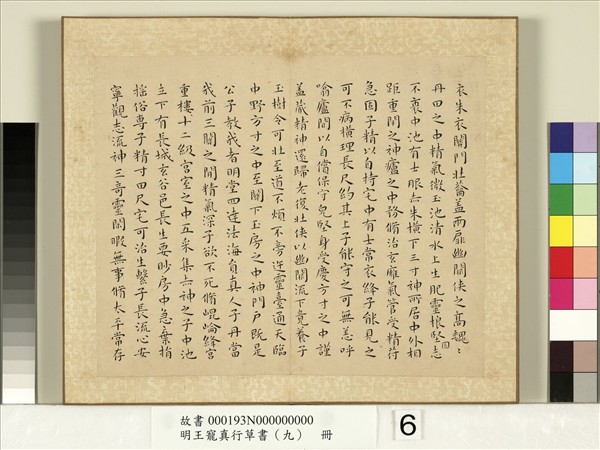 衣朱衣關門壯籥蓋兩扉幽闕俠之高巍〻
丹田之中精氣微玉池清水上生肥靈根堅志
固
不衰中池有士服赤朱橫下三寸神所居中外相
距重閇之神廬之中務脩治玄廱氣管受精符
急固子精以自持宅中有士常衣絳子能見之
可不病橫理長尺約其上子能守之可無恙呼
噏廬間以自償保守完堅身受慶方寸之中謹
蓋藏精神還歸老復壯俠以幽闕流下竟養子
玉樹令可壯至道不煩不旁迕靈臺通天臨
中野方寸之中至關下玉房之中神門戶既是
公子教我者明堂四達法海員真人子丹當
我前三關之間精氣深子欲不死脩崐崘絳宮
重樓十二級宮室之中五采集赤神之子中池
立下有長城玄谷邑長生要眇房中急棄捐
搖俗專子精寸田尺宅可治生繫子長流心安
寧觀志流神三奇靈閒暇無事脩太平常存
故書 000193N000000000
明王寵真行草書（九） 冊
6